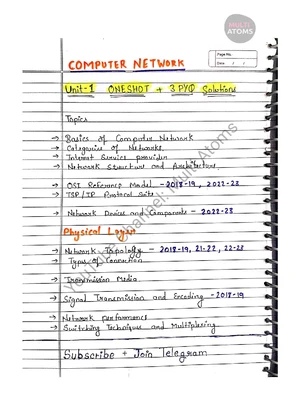 MULTI
ATOMS
Page No.
Date / /
COMPUTER NETWORK
Unit-1 ONESHOT + 3 PYQ Solutions
Topics
→ Basics of Computer Network
→ Categories of Networks.
→ Internet Service provider
→ Network Structure and Architecture.
→ OSI Reference Model - 2018-19, 2022-23
→ TSP/IP Protocol Suite
→ Network Devices and Components - 2022-23
Physical Layer
→ Network Topology - 2018-19, 21-22, 22-23
→ Types of Connection
→ Transmission Media.
→ Signal Transmission and Encoding - 2018-19
→ Network performance
→ Switching Techniques and Multiplexing
Subscribe + Join Telegram